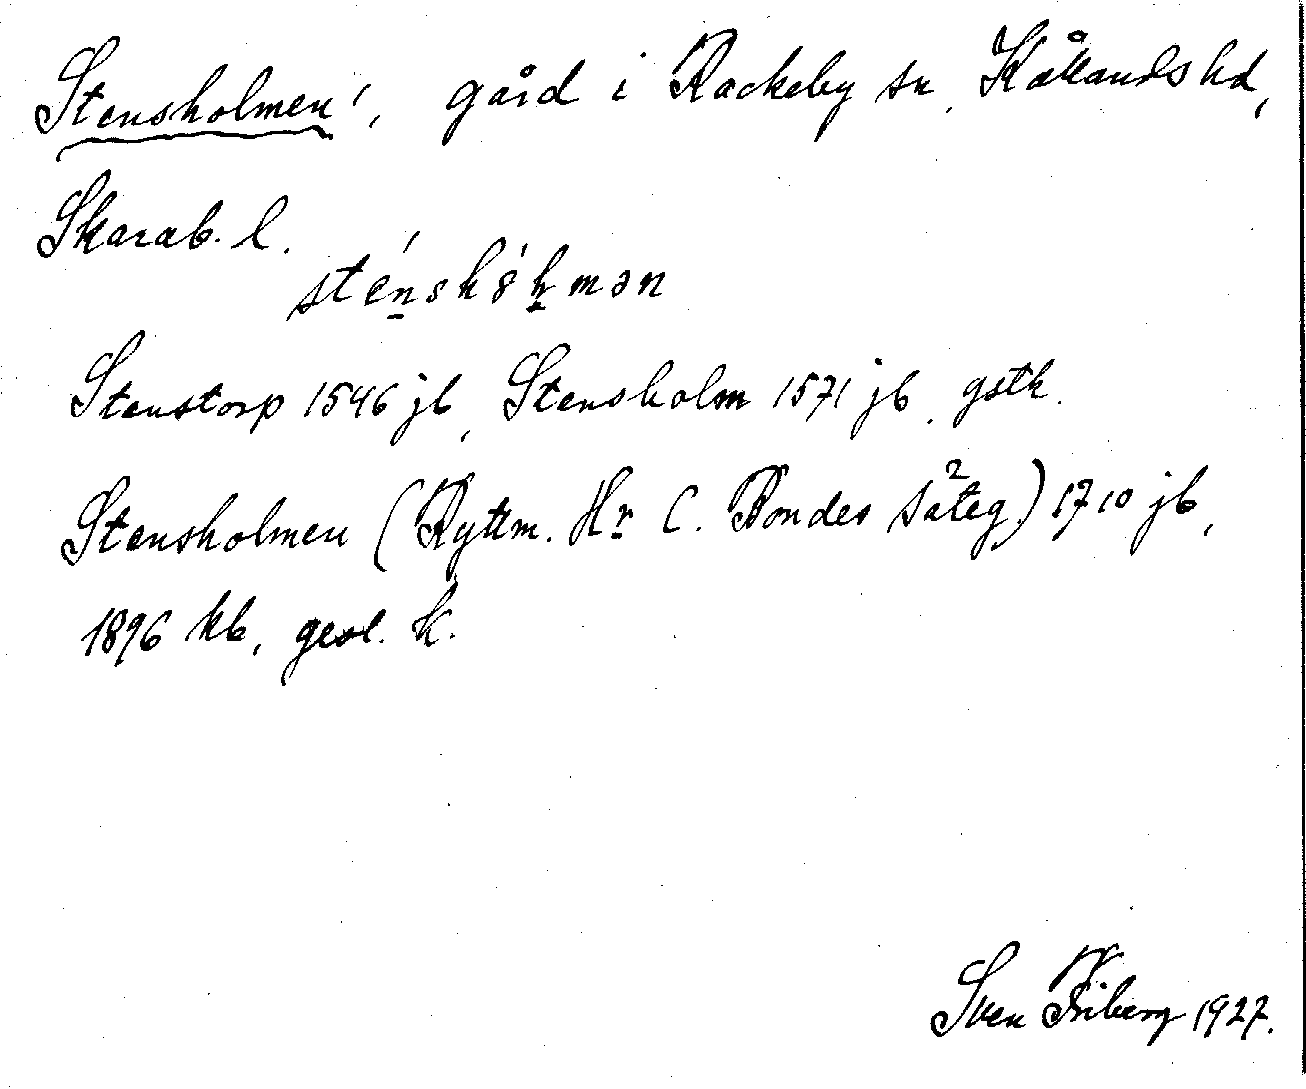 Stensholmen', gård i Rackeby sn, Kållands hd,
Skarab. l.
sténskȣ́hmən
Stenstorp 1546 jb, Stensholm 1571 jb, gstk.
Stensholmen (Ryttm. Hr C. Bondes säteg.) 1710 jb,
1896 kb, geol. k.
Sven Friberg 1927.